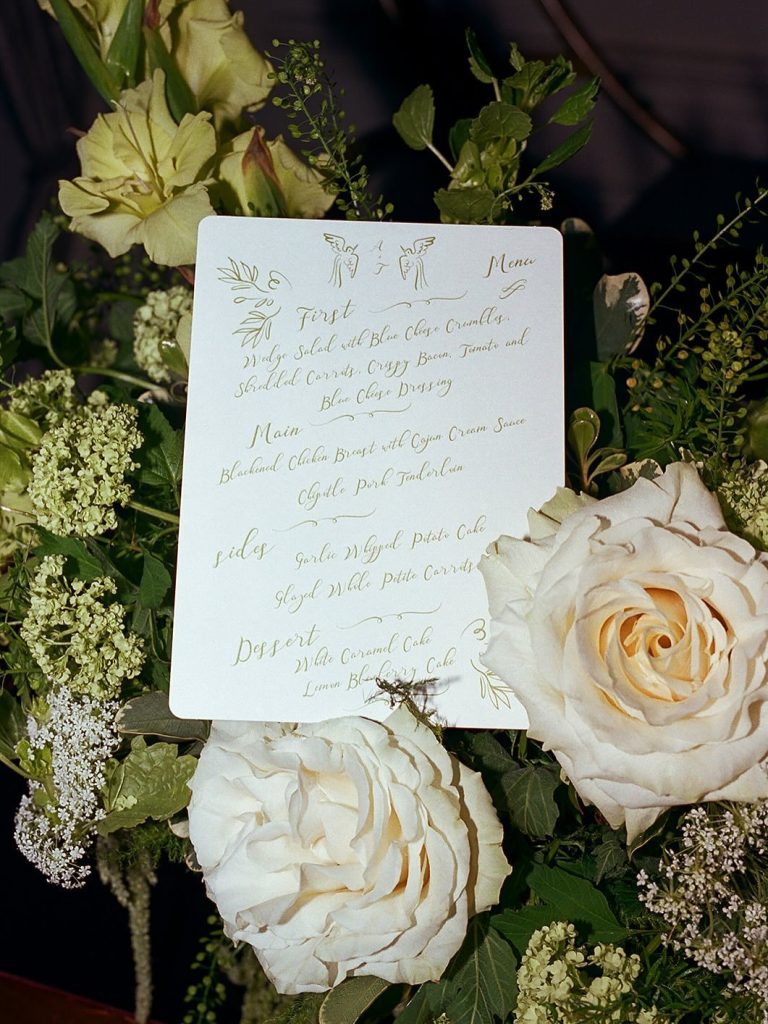 A
J
Menu
First
Wedge Salad with Blue Cheese Crumbles,
Shredded Carrots, Crispy Bacon, Tomato and
Blue Cheese Dressing
Main
Blackened Chicken Breast with Cajun Cream Sauce
Chipotle Pork Tenderloin
sides
Garlic Whipped Potato Cake
Glazed Whole Petite Carrots
Dessert
White Caramel Cake
Lemon Blueberry Cake